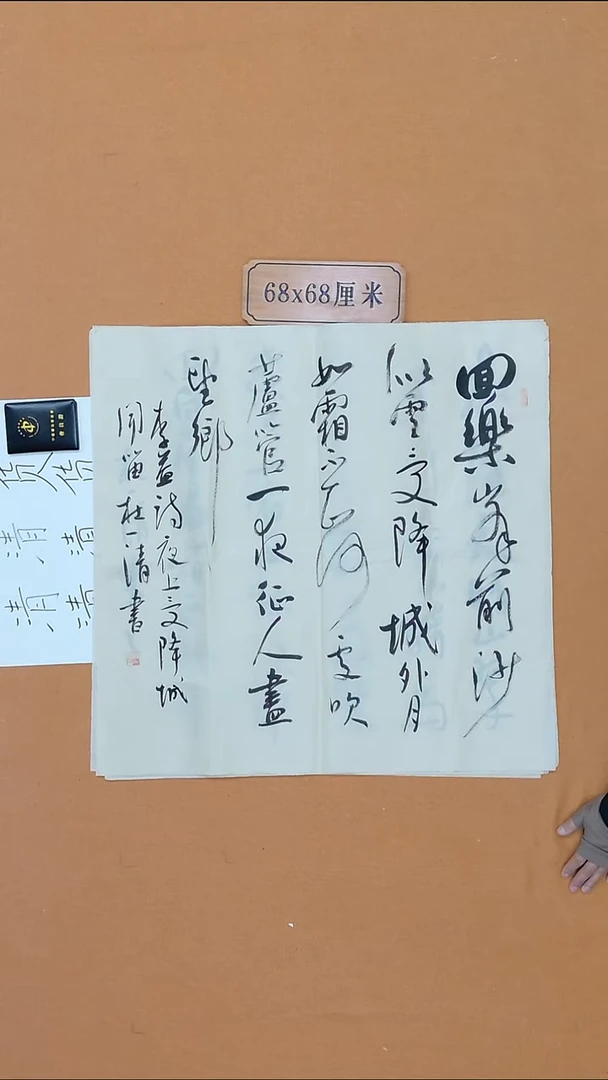 68x68厘米
回樂峯前沙
似雪受降城外月
如霜不知何處吹
蘆管一夜征人盡
望鄉
李益詩夜上受降城
聞笛杜一清書
清 清
清 清